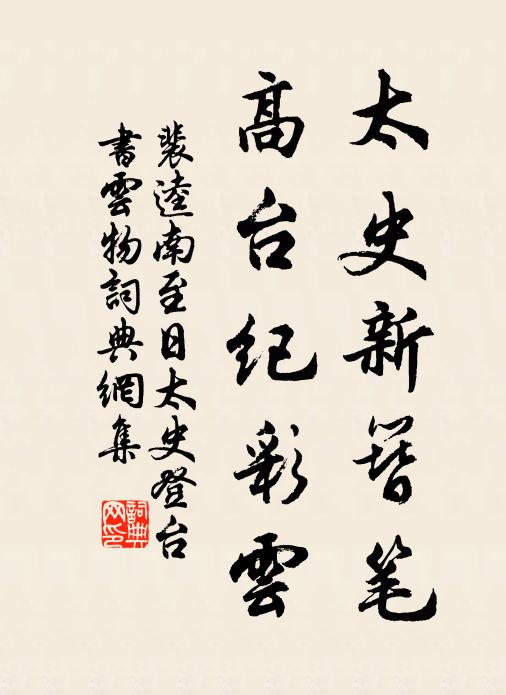 太史新簮笔
高台纪彩雲
裴逵南至日太史登台
書雲物詞典網集
詞典网印